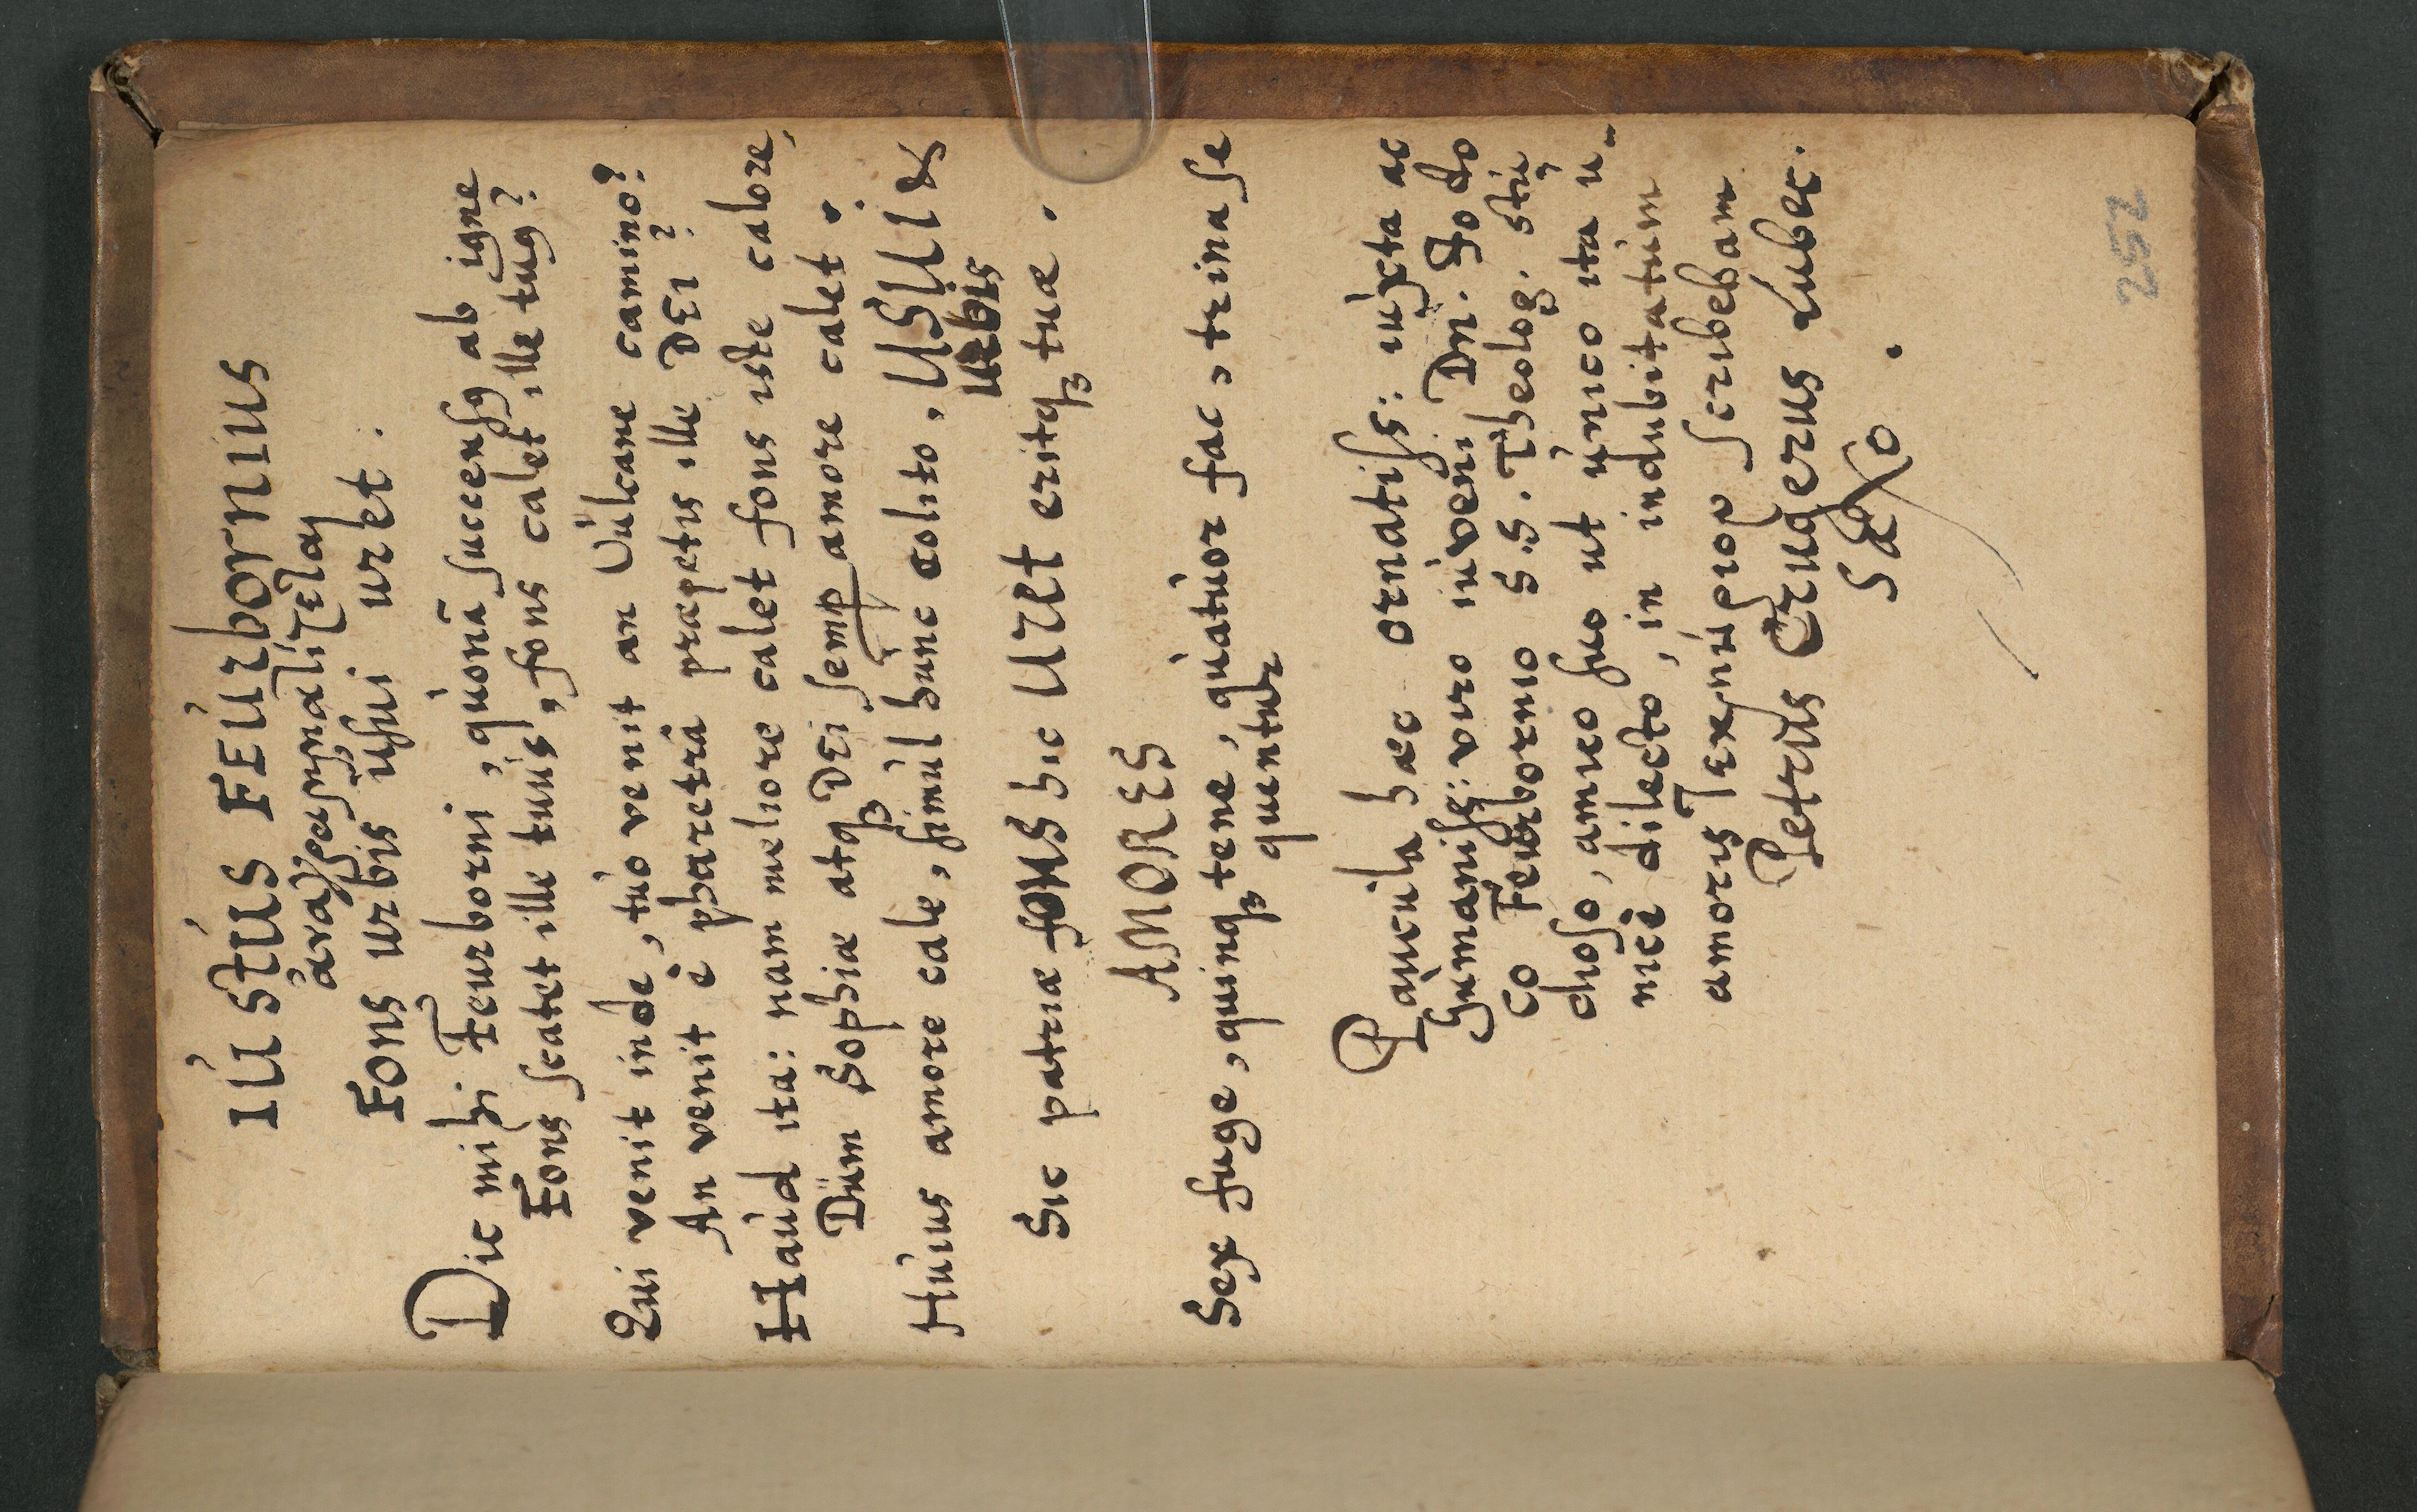 IUSTUS FEURBORNIUS
ἀναγραμματιζόμ
Fons urbis usui uret.
Dic mihi Feurborni, quonā succensq ab igne
Fons scatet ille tuus, fons calet ille tuq?
Qui venit inde, tuo venit an Vulcane camino?
An venit è pharetrâ præpetis ille DEI?
Haud ita: nam meliore calet fons iste calore,
Dum Sophiae atqʒ DEi semp amore calet.
Huius amore cale, simul hunc colito, USUI &
urbis
Sic patriæ fons hic uret eritqʒ tuæ.
AMORES
Sex fuge, quinqʒ tene, quatuor fac, trina se
quentur
Paucula haec ornatiss: iuxta ac
humaniss: viro iuveni Dn. Jo Jo
co Feurbornio S.S. Theolog. stu
dioso, amico suo ut unico ita u-
nicè dilecto, in indubitatum
amoris scribebam
Petrus Crugerus Lubec.
SaXo.
252